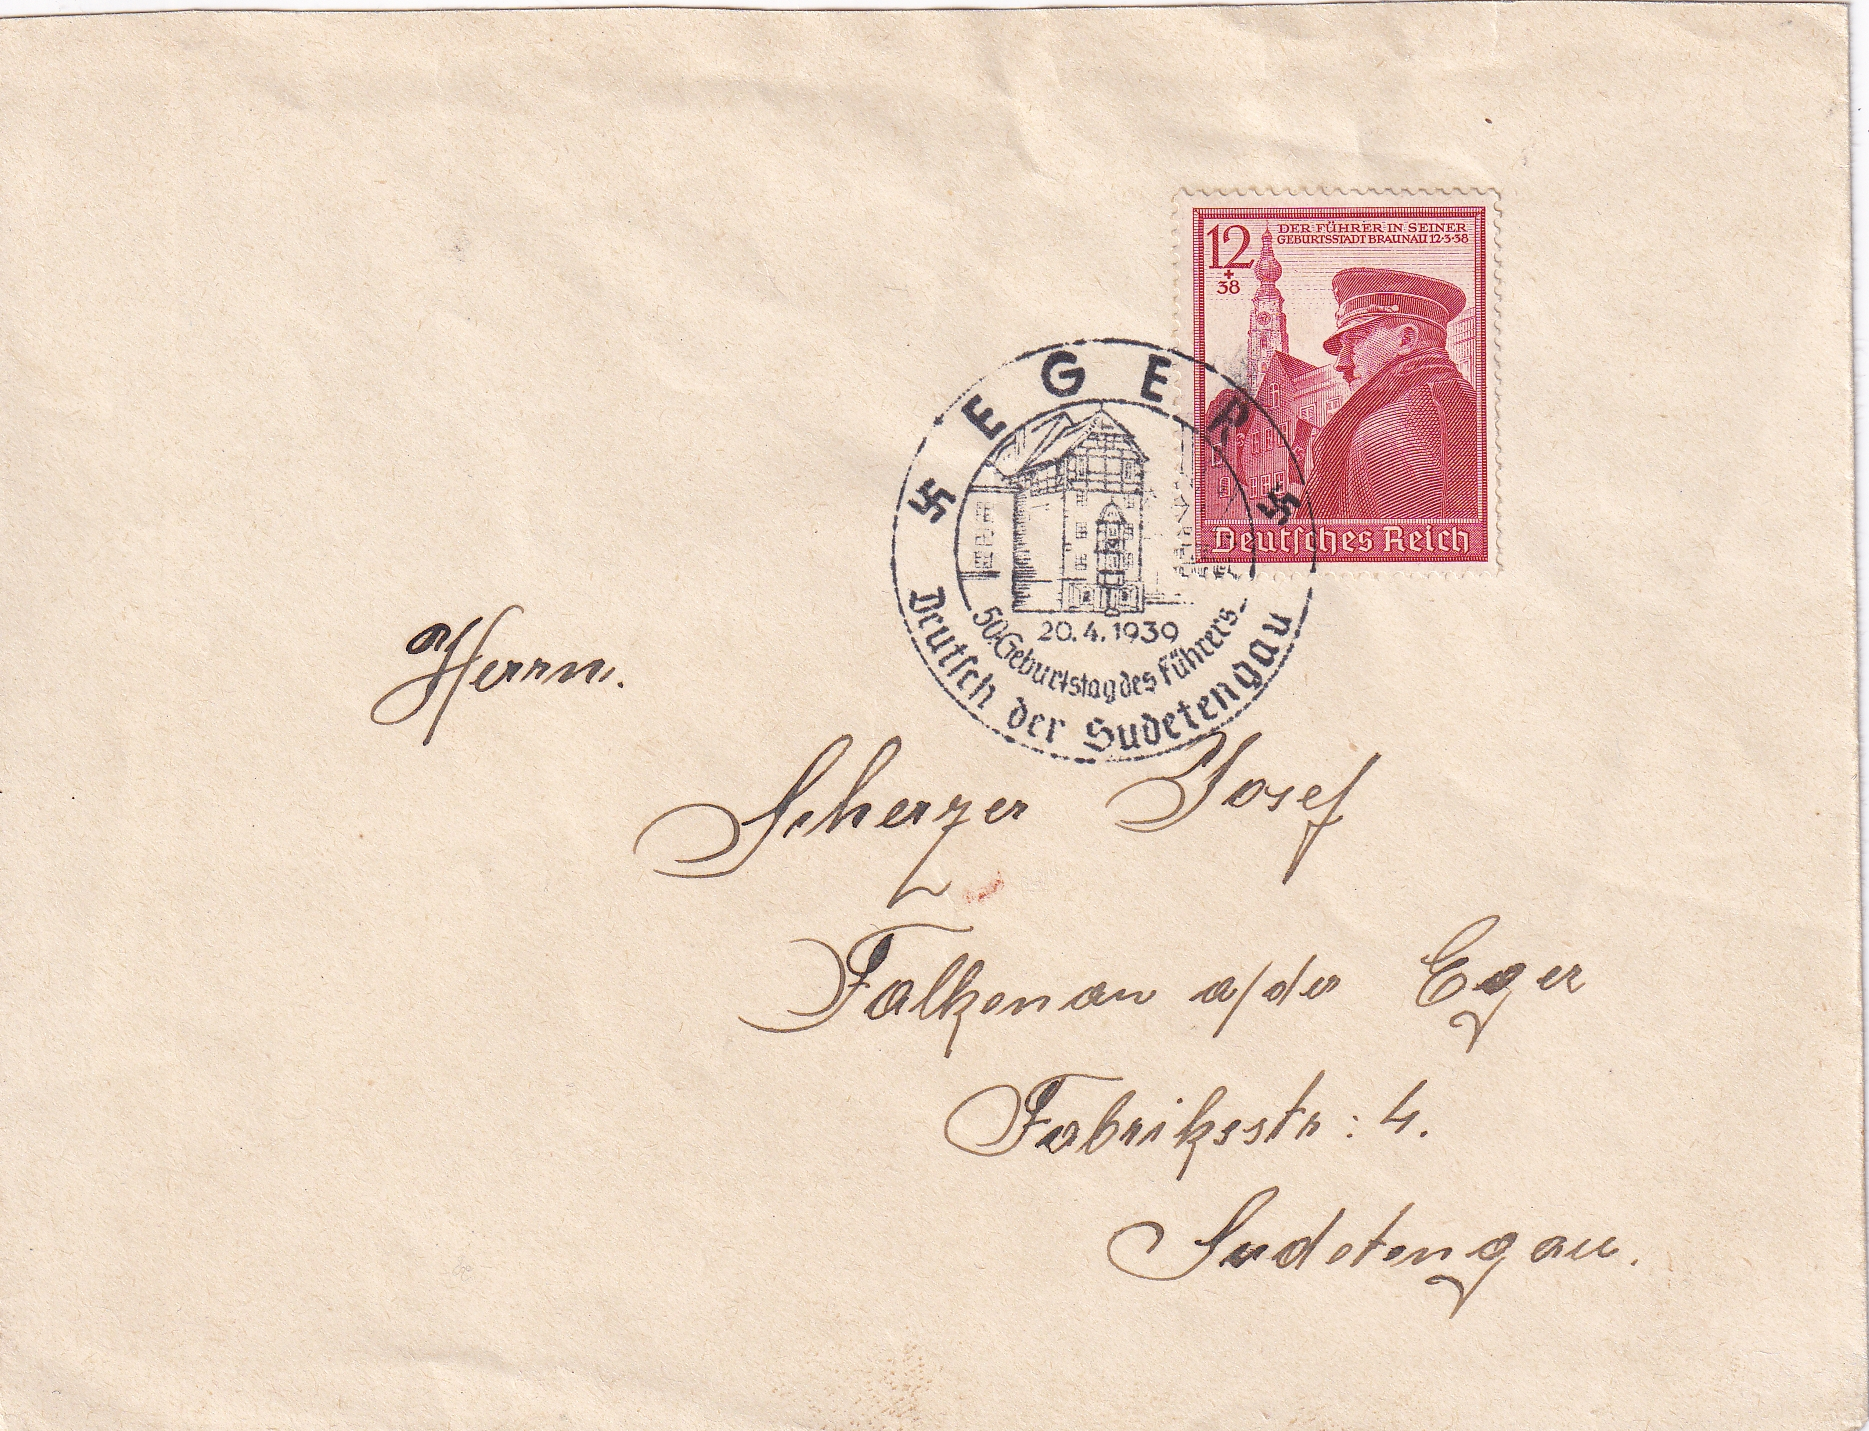 12
+
38
DER FÜHRER IN SEINER
GEBURTSSTADT BRAUNAU 12·3·38
Deutsches Reich
EGER
20.4.1939
50. Geburtstag des Führers
Deutsch der Sudetengau
Herrn.
Scherzer Josef
Falkenau a/der Eger
Fabriksstr: 4.
Sudetengau.